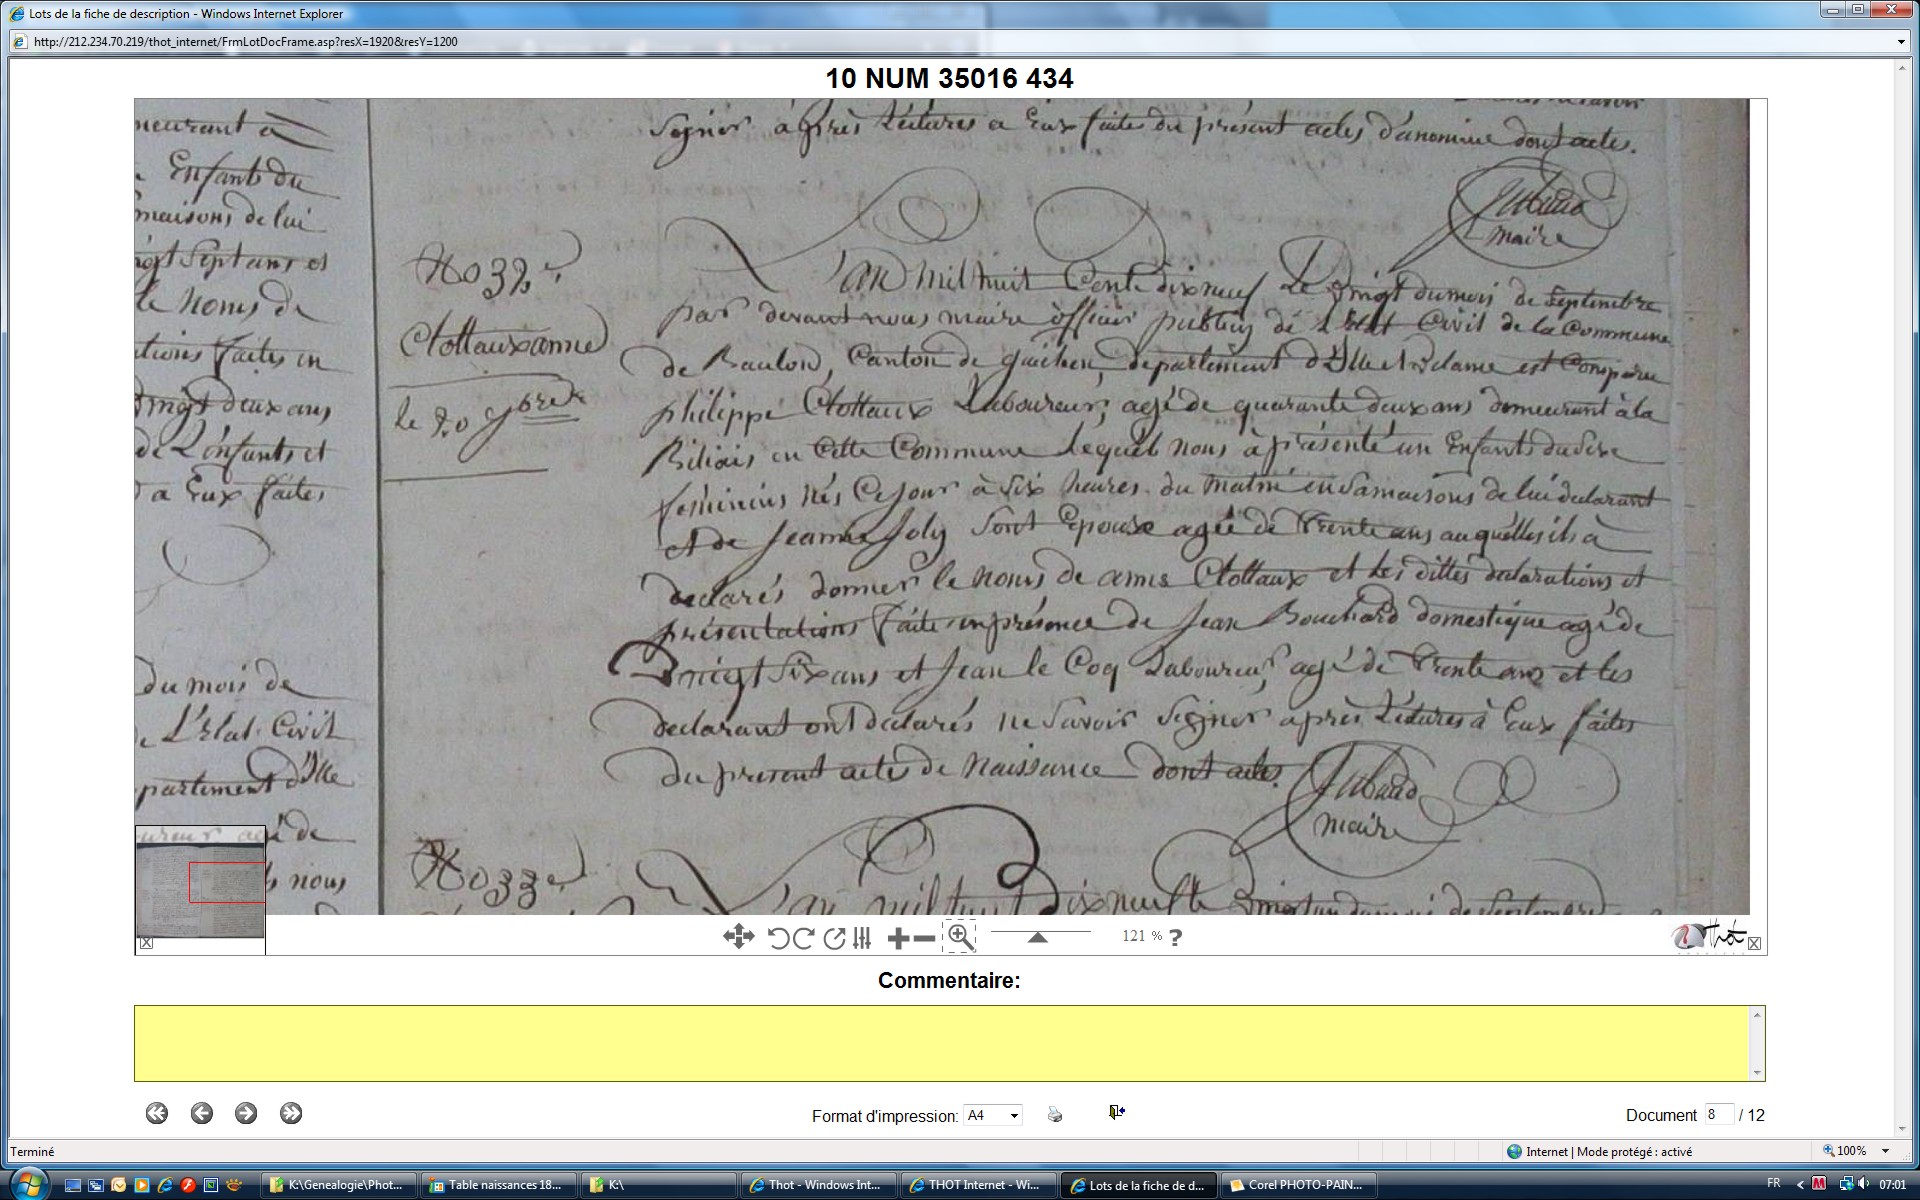 Lots de la fiche de description - Windows Internet Explorer
http://212.234.70.219/thot_internet/FrmLotDocFrame.asp?resX=1920&resY=1200
10 NUM 35016 434
meurant à
Enfants du
maisons de lui
vingt Septans et
le noms de
ations faites en
vingt deux ans
de L'enfants et
a Eux faites
du mois de
L'Etat Civil
partement d'Ille
agé de
nous
signer après Lectures a Eux faites du présent actes d'anomine dont actes.
maire
No 32e
Clottaux anne
le 20 7bre
L'an mil huit Cent dix neuf Le vingt du mois de Septembre
par devant nous maire officier publics de L'Etat Civil de la Commune
de Baulon, Canton de guichen, departement d'Ille et vilaine est Comparu
philippe Clottaux Laboureur, agé de quarante deux ans demeurant à la
Biliais en Cette Commune Lequel nous à présenté un Enfants du Sexe
féminins nés Ce jour à Six heures du matin en Sa maisons de lui declarant
et de Jeanne Joly Sont Epouse agée de trente ans au quelles ils à
declarés donner le noms de anne Clottaux et les dittes declarations et
présentations faite en présence de Jean Bouchard domestique agé de
vingt Six ans et Jean le Coq Laboureur, agé de trente ans et les
declarant ont declarés ne Savoir Signer après Lectures à Eux faites
du present actes de Naissance dont actes.
maire
No 33e
L'an mil huit Dix neuf le vingt un du mois de Septembre
121 % ?
Thot
Commentaire:
Format d'impression: A4
Document 8 / 12
Terminé
Internet | Mode protégé : activé
100%
K:\Genealogie\Phot...
Table naissances 18...
K:\
Thot - Windows Int...
THOT Internet - Wi...
Lots de la fiche de d...
Corel PHOTO-PAIN...
FR
07:01